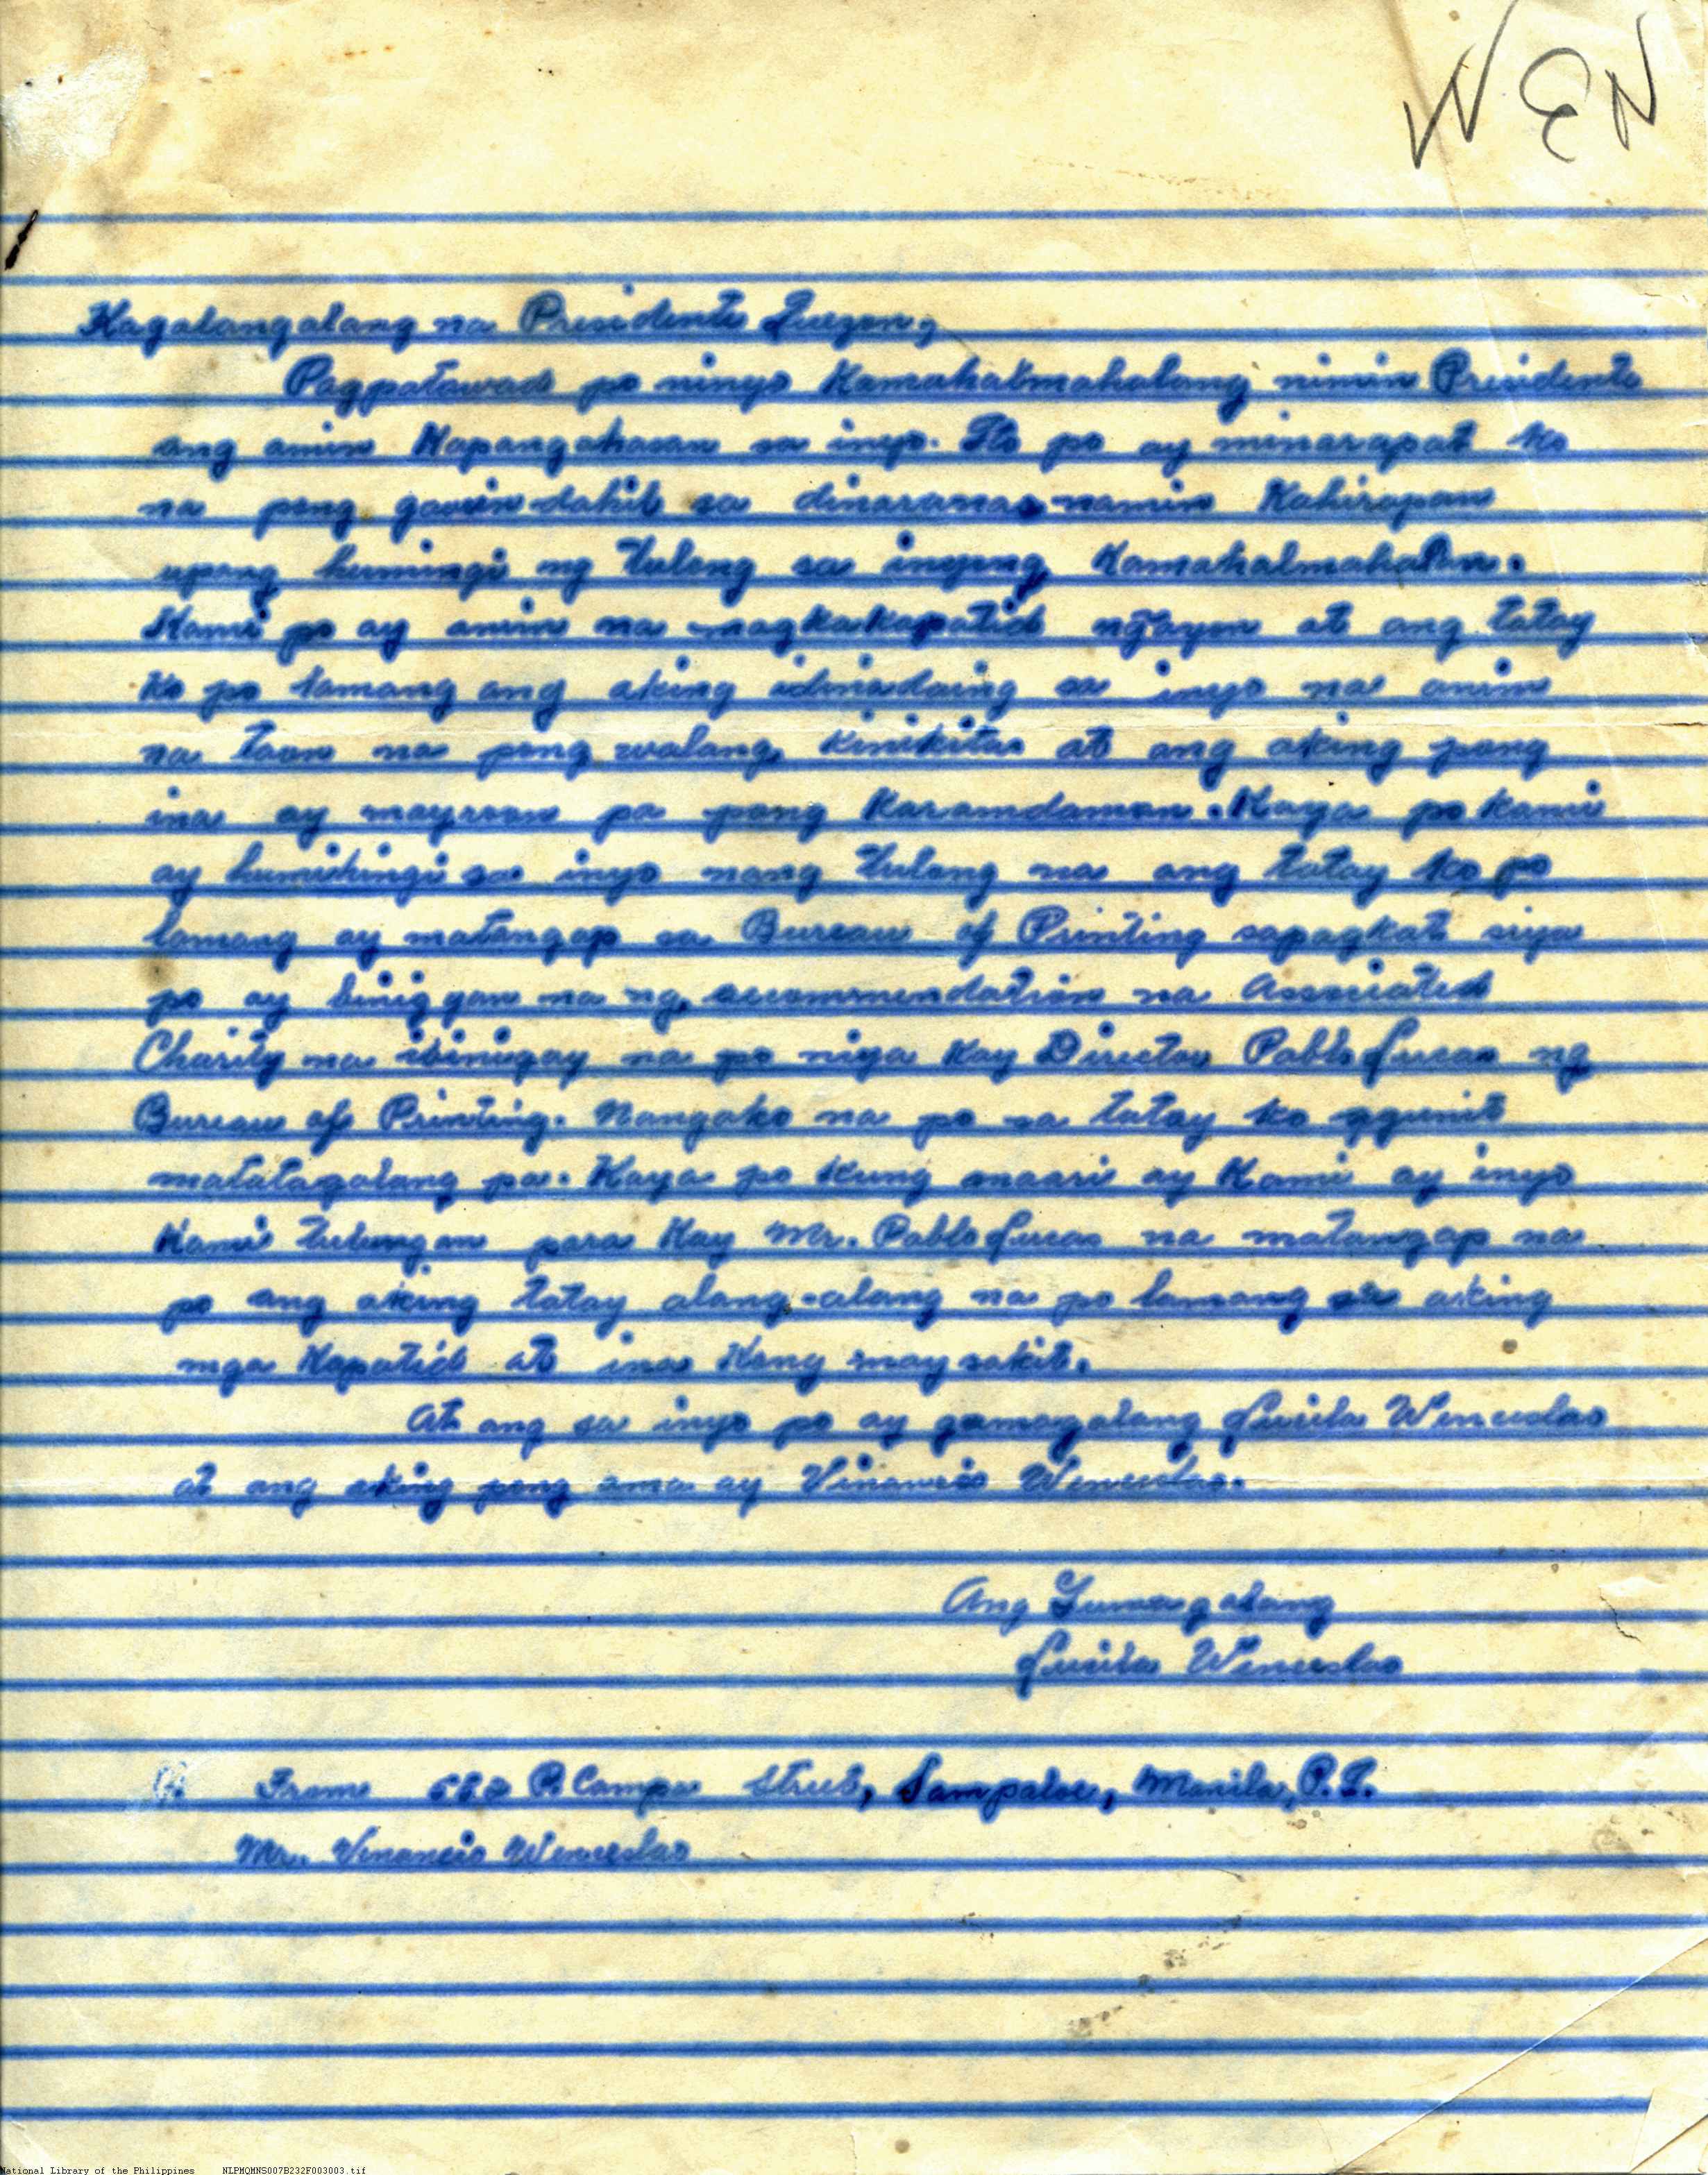 WEN
Kagalanggalang na Presidente Quezon,
Pagpatawad po ninyo Kamahalmahalang nimin Presidente
ang amin Kapangahasan sa inyo. Ito po ay minarapat ko
na pong gawin dahil sa dinaranas namin Kahirapan
upang humingi ng tulong sa inyong Kamahalmahalan.
Kami po ay anim na magkakapatid ngayon at ang tatay
ko po lamang ang aking idinadaing sa inyo na anim
na taon na pong walang kinikita at ang aking pong
ina ay mayroon pa pong Karamdaman. Kaya po kami
ay humihingi sa inyo nang tulong na ang tatay ko po
lamang ay matangap sa Bureau of Printing sapagkat siya
po ay binigyan na ng recommendation na Associated
Charity na ibinigay na po niya kay Director Pablo Lucas ng
Bureau of Printing. Nangako na po sa tatay ko ngunit
matatagalang pa. Kaya po kung maari ay Kami ay inyo
Kami tulungan para Kay Mr. Pablo Lucas na matangap na
po ang aking tatay alang-alang na po lamang sa aking
mga Kapatid at ina Kong may sakit.
At ang sa inyo po ay gumagalang Lucila Wenceslao
at ang aking pong ama ay Vinancio Wenceslao.
Ang Gumagalang
Lucila Wenceslao
From P. Campa Street, Sampaloc, Manila, P.I.
Mr. Vinancio Wenceslao
National Library of the Philippines NLPMQMNS007B232F003003.tif